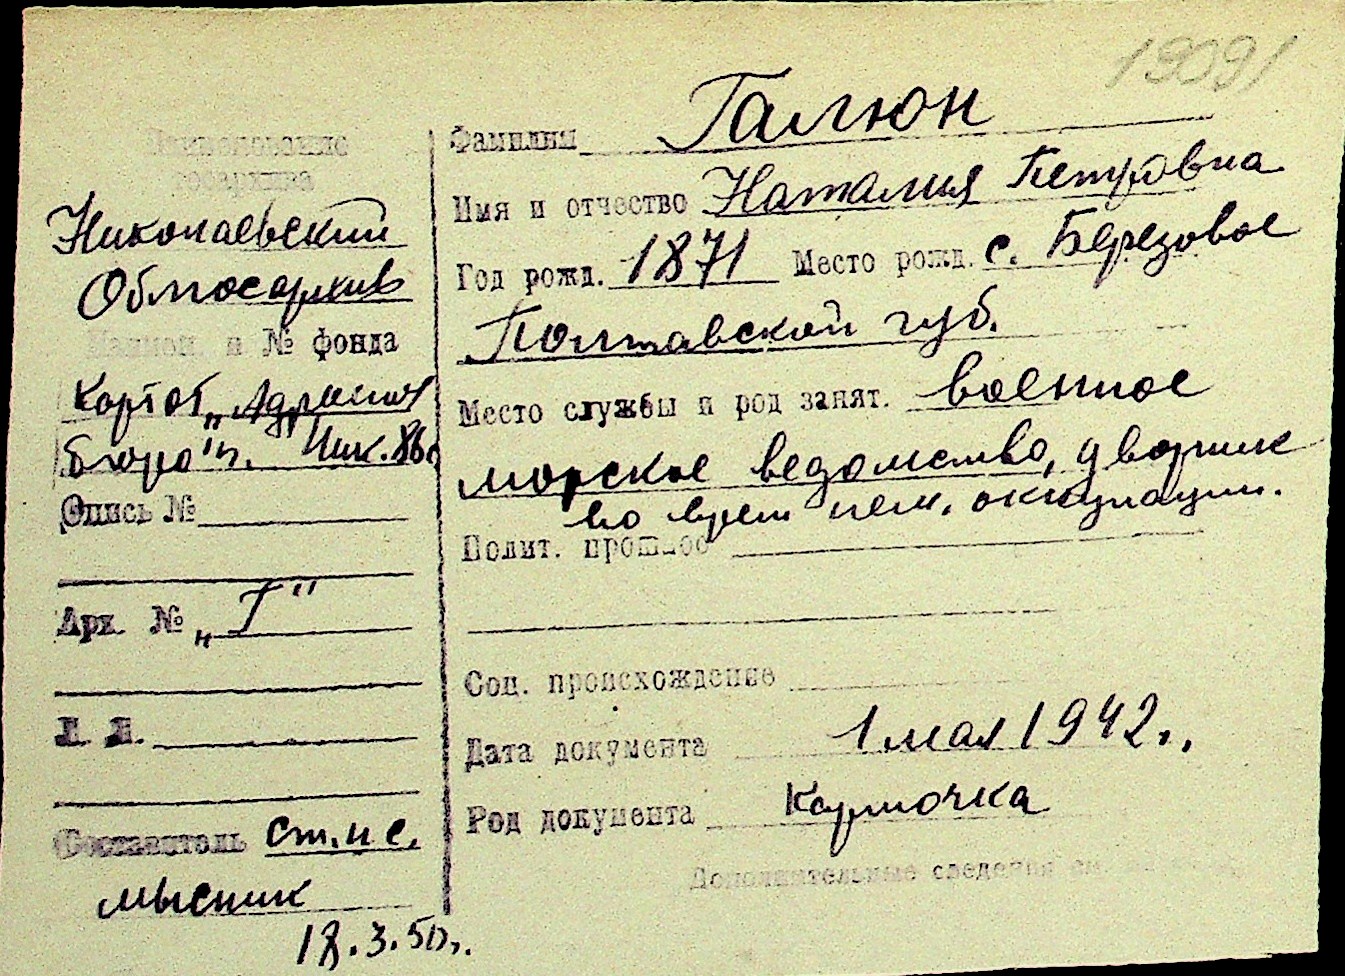 19091
Наименование
госархива
Николаевский
Облгосархив
Наимен. и № фонда
Картот. „Адресног
бюро" г. Ник.
Опись №
Арх. № „Г"
Л. Л.
Составитель ст. н. с.
мысник
18.3.50г.
Фамилия Галюн
Имя и отчество Наталия Петровна
Год рожд. 1871 Место рожд. с. Березовое
Полтавской губ.
Место службы и род занят. военное
морское ведомство, дворник
во врем нем. оккупации.
Полит. прошлое
Соц. происхождение
Дата документа 1 мая 1942г.
Род документа Карточка
Дополнительные сведения см.